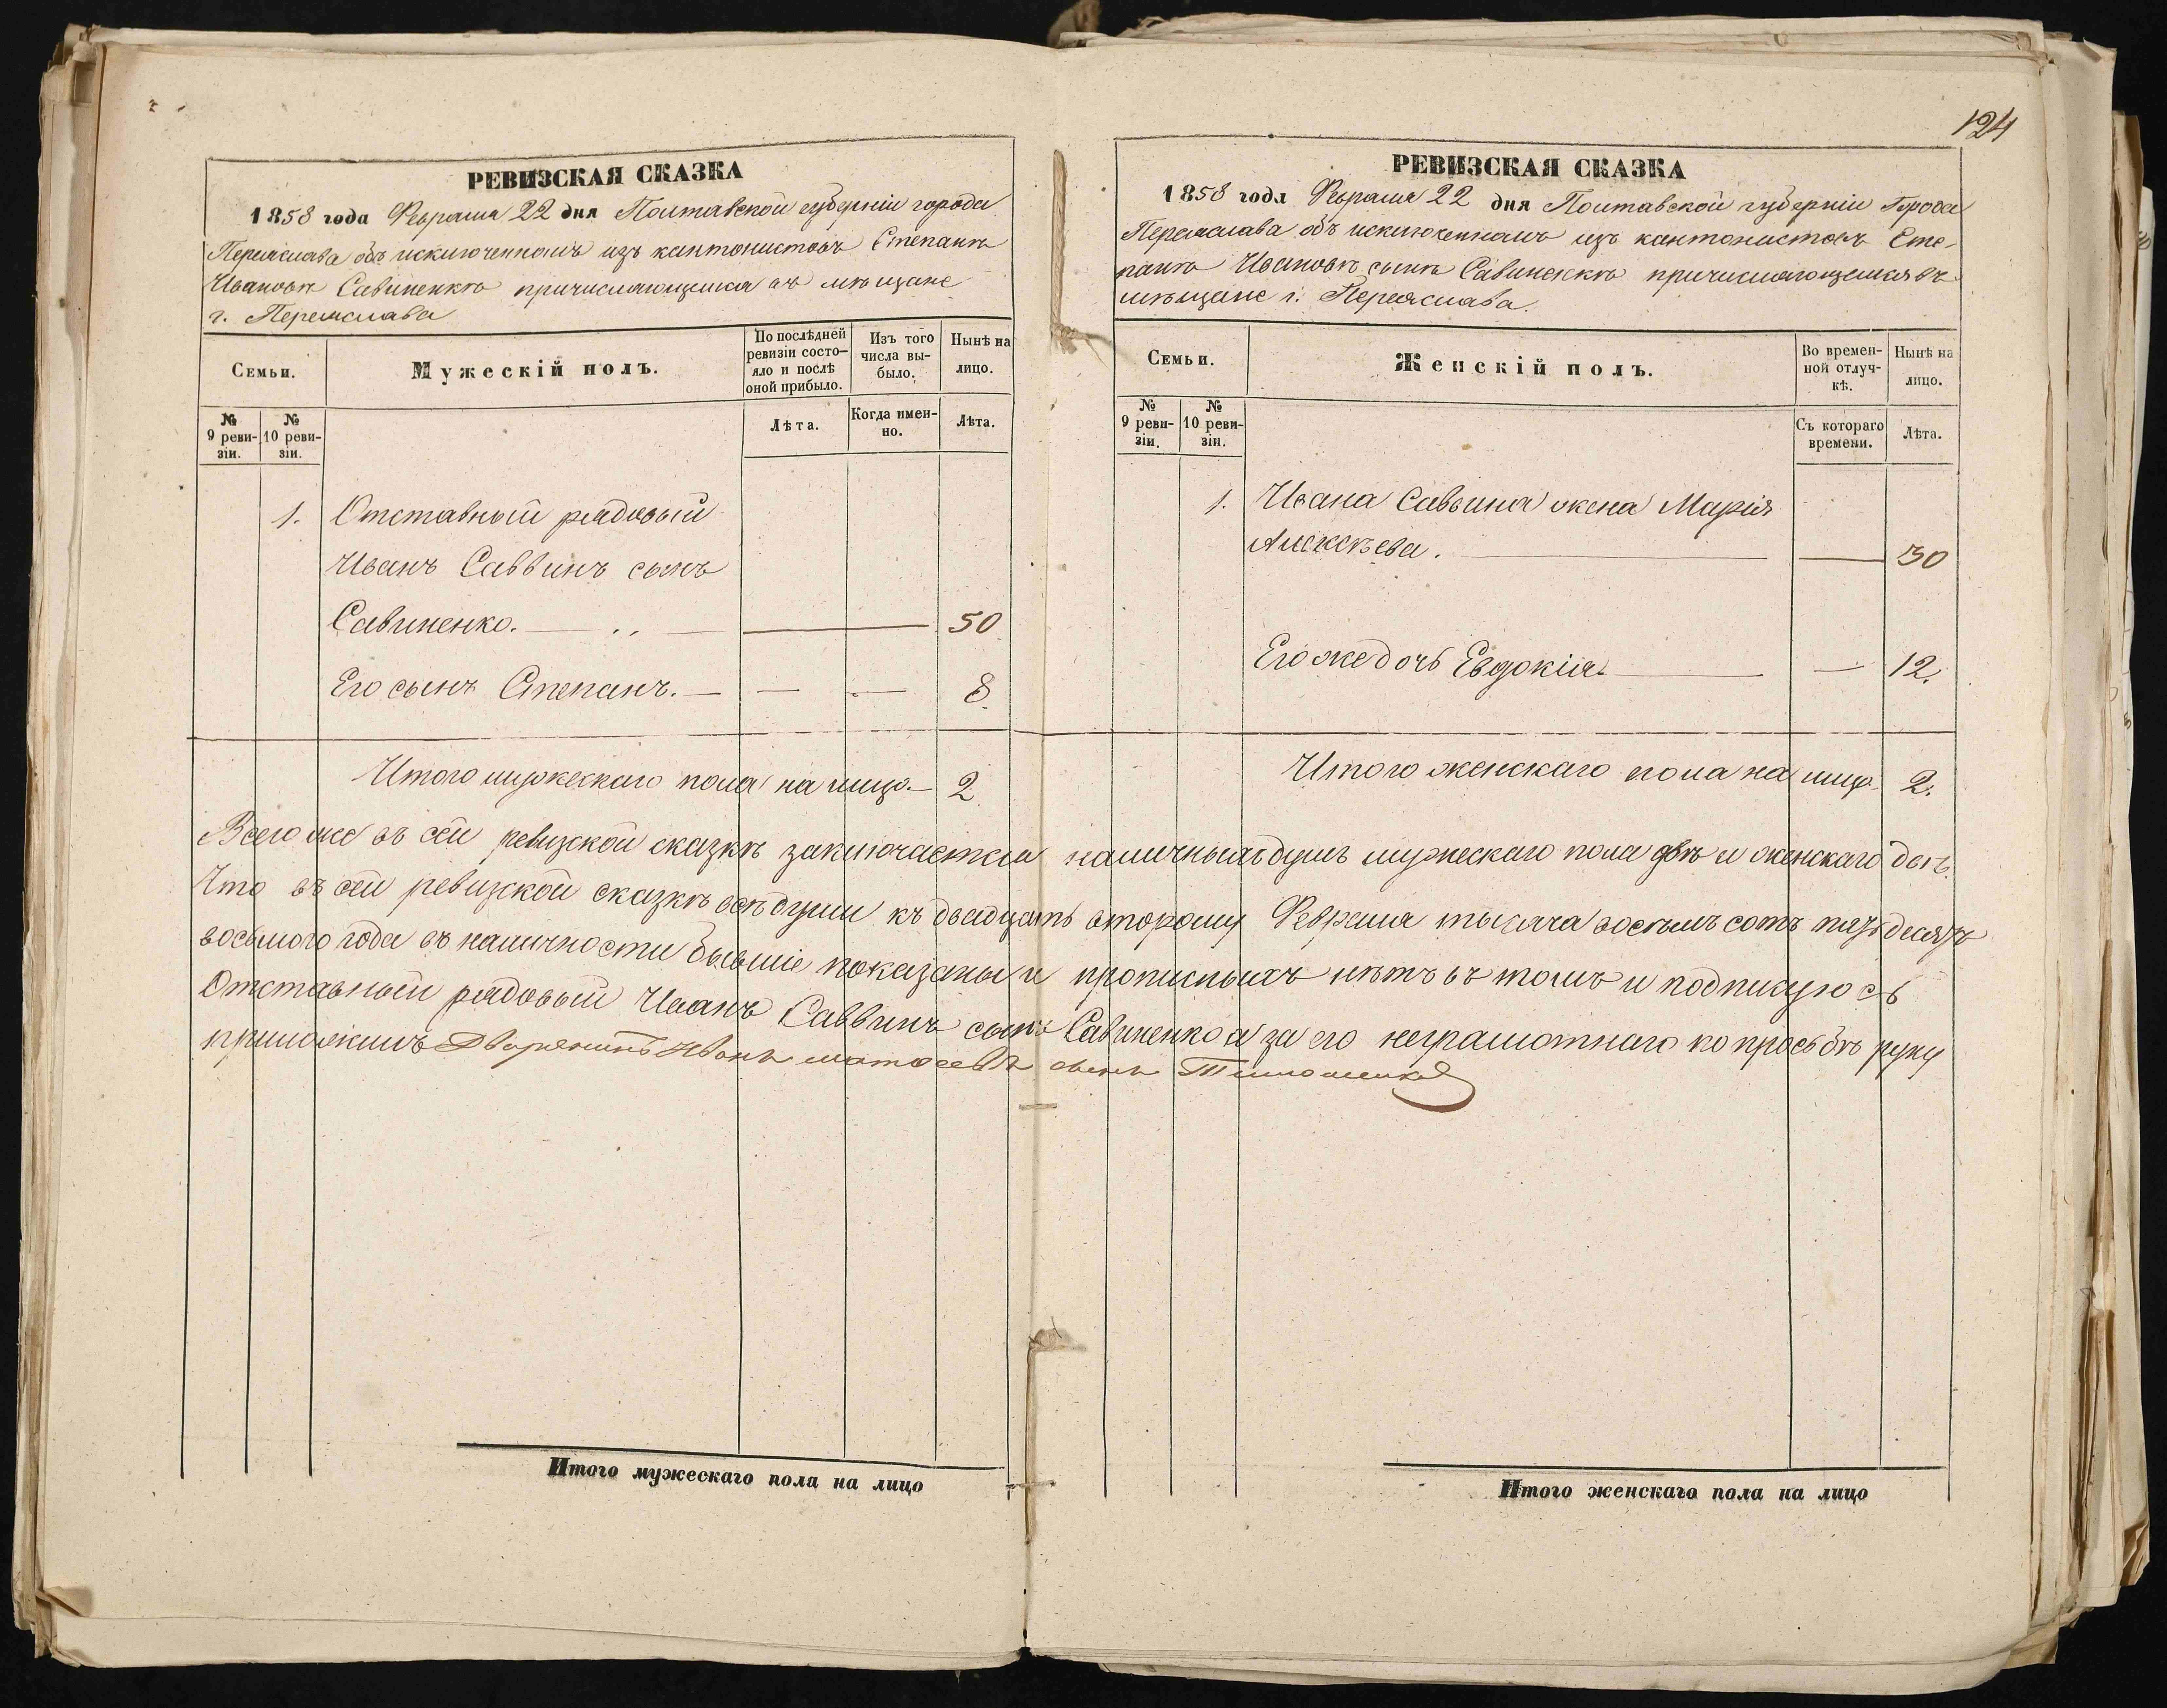 РЕВИЗСКАЯ СКАЗКА
1858 года Февраля 22 дня Полтавской губерніи города
Переяслава объ исключенномъ изъ кантонистовъ Степанѣ
Ивановѣ Савиненкѣ причисляющемся въ мѣщане
г. Переяслава
Семьи.
Мужескій полъ.
По послѣдней ревизіи состо-
яло и послѣ оной прибыло.
Изъ того числа вы-
было.
Нынѣ на лицо.
№ 9 реви-
зіи.
№ 10 реви-
зіи.
Лѣта.
Когда имен-
но.
Лѣта.
1. Отставный рядовый
Иванъ Саввинъ сынъ
Савиненко. 50
Его сынъ Степанъ. 8.
Итого мужескаго пола на лицо 2
124
РЕВИЗСКАЯ СКАЗКА
1858 года Февраля 22 дня Полтавской губерніи Города
Переяслава объ исключенномъ изъ кантонистовъ Сте-
панѣ Ивановѣ сынѣ Савиненкѣ причисляющемся въ
мѣщане г. Переяслава.
Семьи.
Женскій полъ.
Во времен-
ной отлуч-
кѣ.
Нынѣ на
лицо.
№ 9 реви-
зіи.
№ 10 реви-
зіи.
Съ котораго
времени.
Лѣта.
1. Ивана Саввина жена Марія
Алексѣева. 30
Его же дочь Евдокія. 12.
Итого женскаго пола на лицо 2.
Всего же въ сей ревизской сказкѣ заключается наличныхъ душъ мужескаго пола двѣ и женскаго двѣ.
Что въ сей ревизской сказкѣ всѣ души къ двадцать второму Февраля тысяча восемь сотъ пятьдесятъ
восьмого года въ наличности бывшіе показаны и прописныхъ нѣтъ въ томъ и подписуюсь
Отставный рядовый Иванъ Саввинъ сынъ Савиненко а за его неграмотнаго по просьбѣ руку
приложилъ Дворянинъ Иванъ сынъ
Итого мужескаго пола на лицо
Итого женскаго пола на лицо